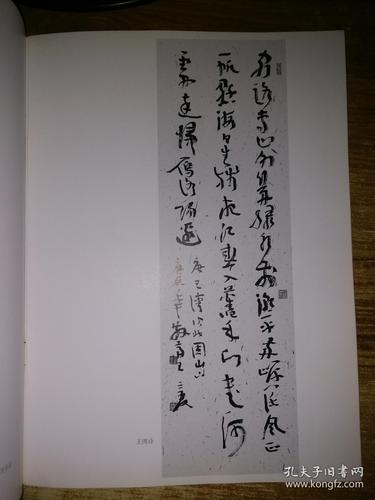 客路青山外行舟綠水前潮平兩岸闊風正
一帆懸海日生殘夜江春入舊年鄉書何
處達歸雁洛陽邊
唐王灣次北固山下
王湾诗
孔夫子旧书网
www.kongfz.com